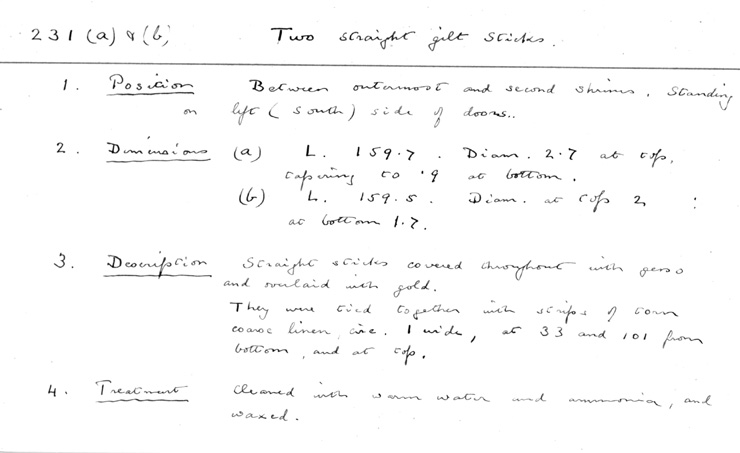 231 (a) & (b) Two straight gilt sticks.
1. Position Between outermost and second shrines, standing
on left (south) side of doors..
2. Dimensions (a) L. 159.7. Diam. 2.7 at top,
tapering to .9 at bottom.
(b) L. 159.5. Diam. at top 2 :
at bottom 1.7.
3. Description Straight sticks covered throughout with gesso
and overlaid with gold.
They were tied together with strips of torn
coarse linen, circ. 1 wide, at 33 and 101 from
bottom, and at top.
4. Treatment Cleaned with warm water and ammonia, and
waxed.